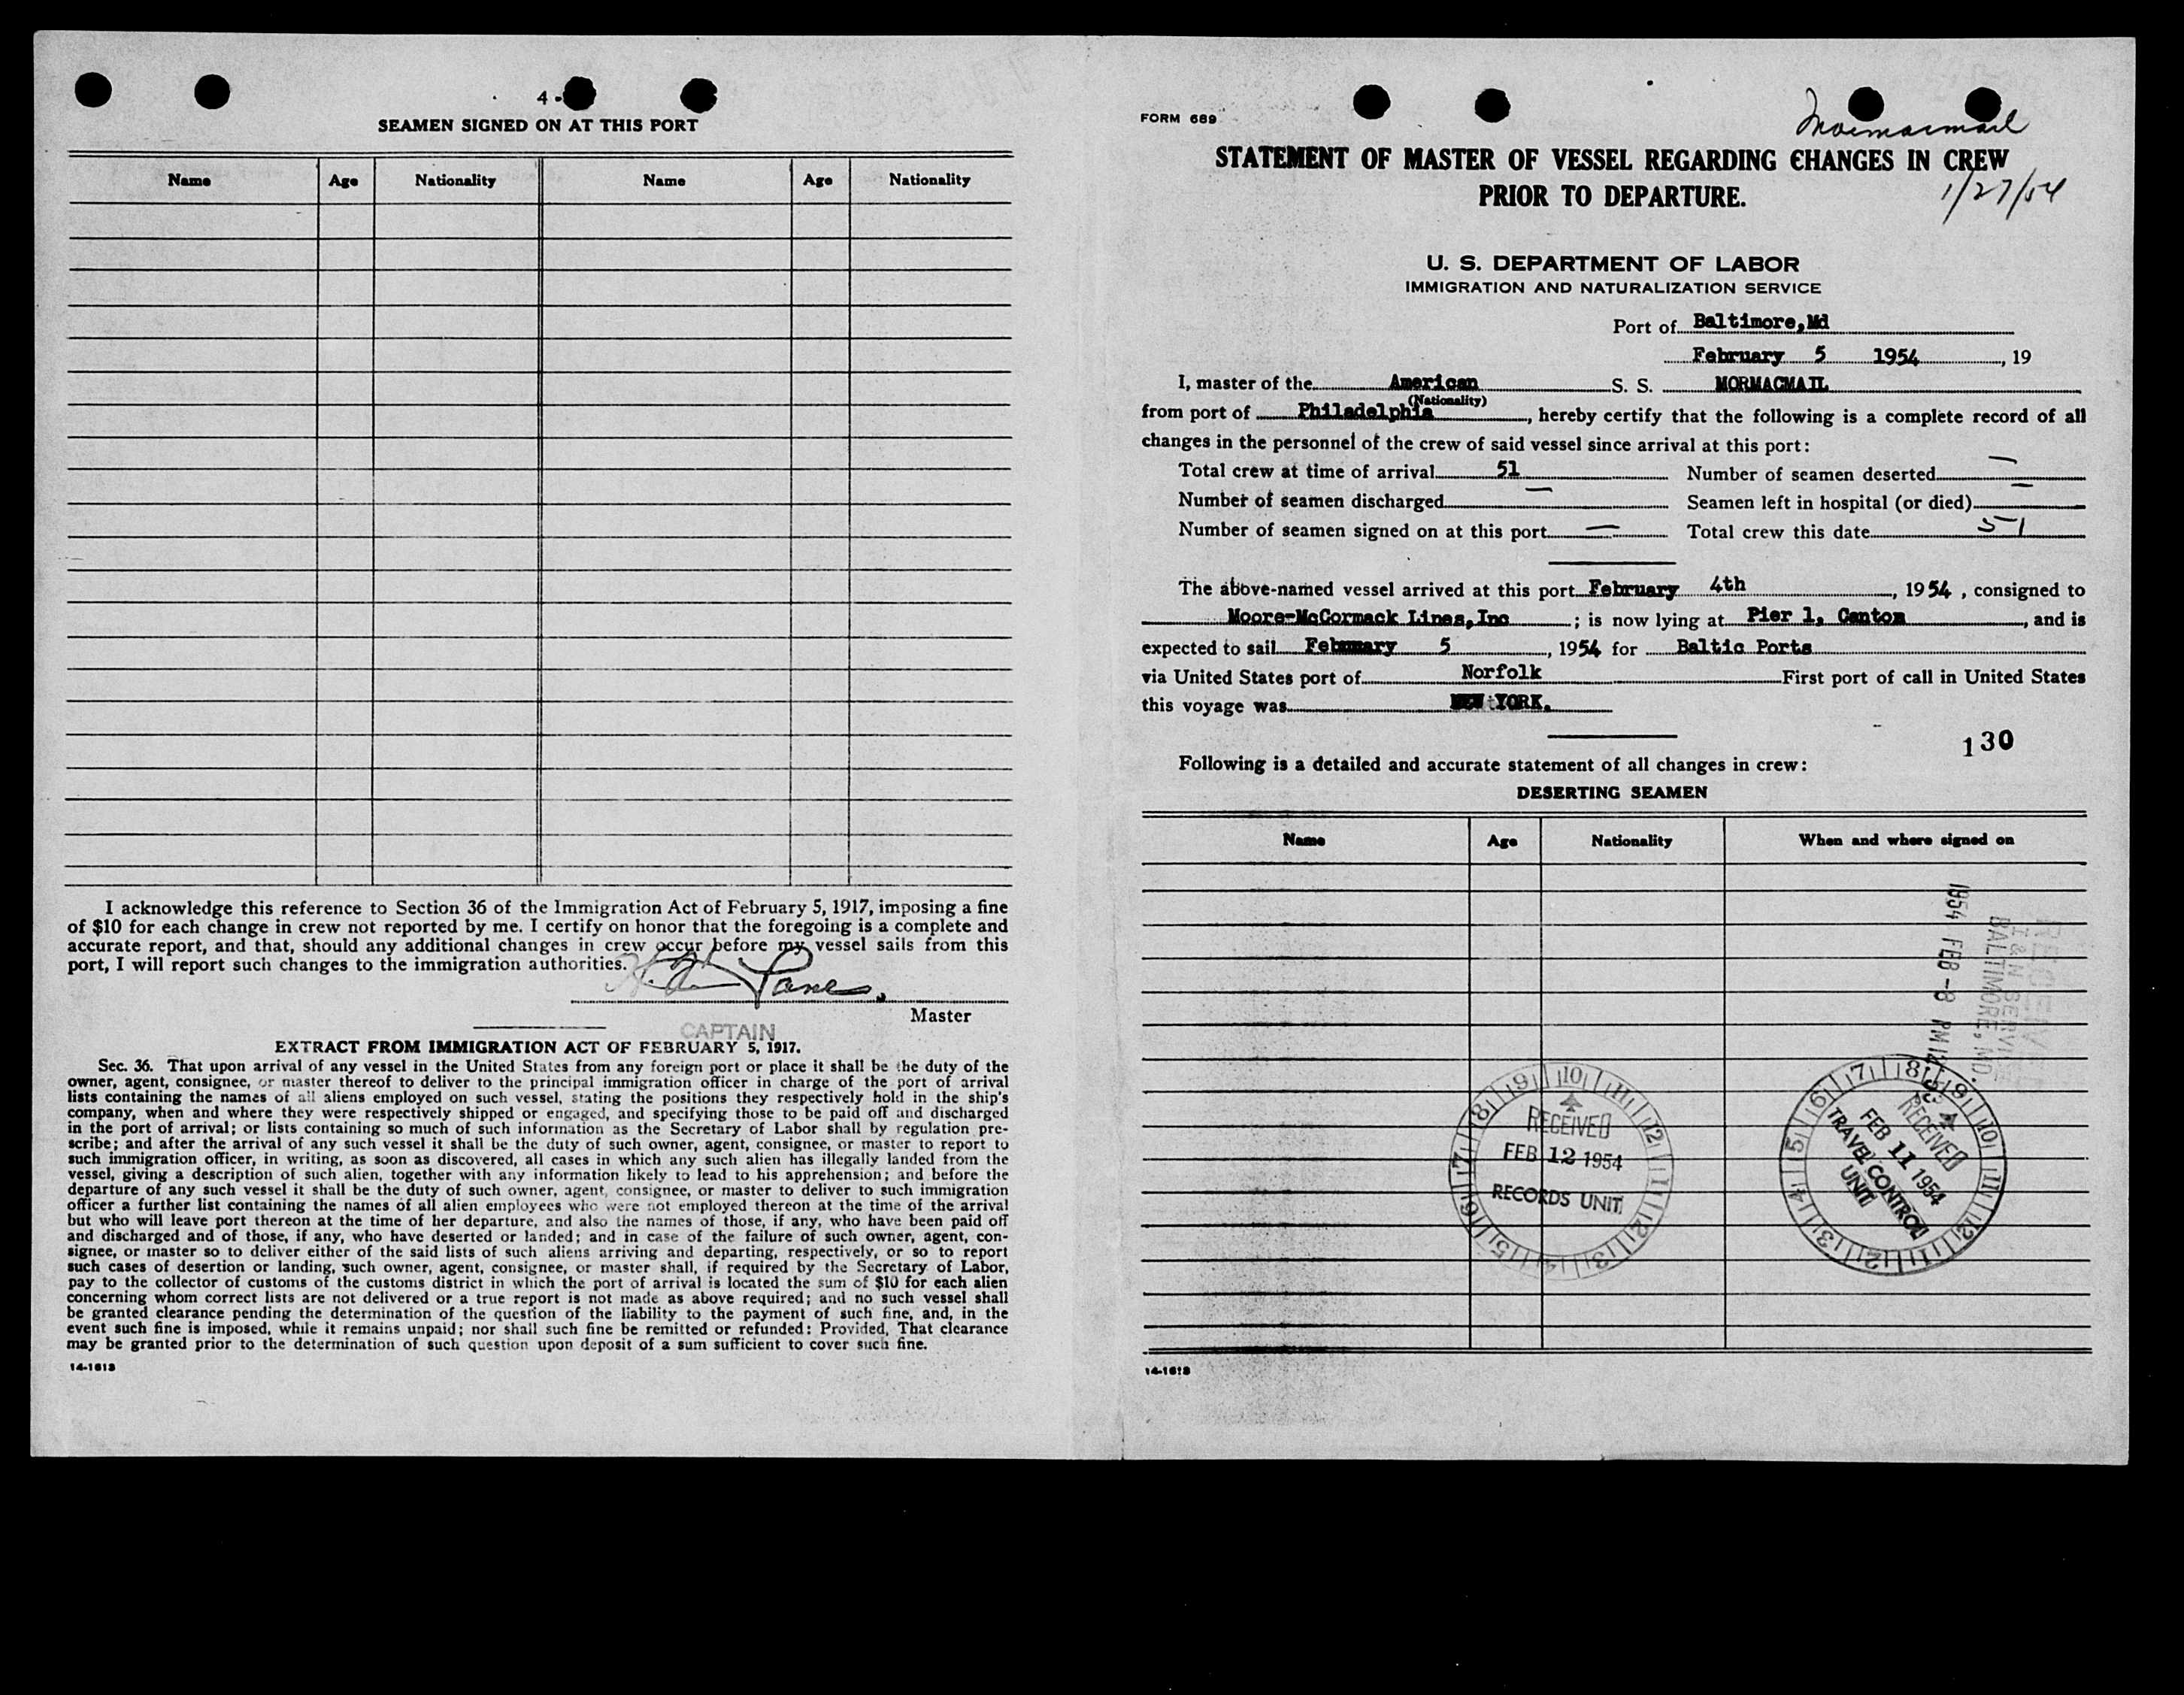 4 -
SEAMEN SIGNED ON AT THIS PORT
Name Age Nationality Name Age Nationality
I acknowledge this reference to Section 36 of the Immigration Act of February 5, 1917, imposing a fine
of $10 for each change in crew not reported by me. I certify on honor that the foregoing is a complete and
accurate report, and that, should any additional changes in crew occur before my vessel sails from this
port, I will report such changes to the immigration authorities.
Master
CAPTAIN
EXTRACT FROM IMMIGRATION ACT OF FEBRUARY 5, 1917.
Sec. 36. That upon arrival of any vessel in the United States from any foreign port or place it shall be the duty of the
owner, agent, consignee, or master thereof to deliver to the principal immigration officer in charge of the port of arrival
lists containing the names of all aliens employed on such vessel, stating the positions they respectively hold in the ship's
company, when and where they were respectively shipped or engaged, and specifying those to be paid off and discharged
in the port of arrival; or lists containing so much of such information as the Secretary of Labor shall by regulation pre-
scribe; and after the arrival of any such vessel it shall be the duty of such owner, agent, consignee, or master to report to
such immigration officer, in writing, as soon as discovered, all cases in which any such alien has illegally landed from the
vessel, giving a description of such alien, together with any information likely to lead to his apprehension; and before the
departure of any such vessel it shall be the duty of such owner, agent, consignee, or master to deliver to such immigration
officer a further list containing the names of all alien employees who were not employed thereon at the time of the arrival
but who will leave port thereon at the time of her departure, and also the names of those, if any, who have been paid off
and discharged and of those, if any, who have deserted or landed; and in case of the failure of such owner, agent, con-
signee, or master so to deliver either of the said lists of such aliens arriving and departing, respectively, or so to report
such cases of desertion or landing, such owner, agent, consignee, or master shall, if required by the Secretary of Labor,
pay to the collector of customs of the customs district in which the port of arrival is located the sum of $10 for each alien
concerning whom correct lists are not delivered or a true report is not made as above required; and no such vessel shall
be granted clearance pending the determination of the question of the liability to the payment of such fine, and, in the
event such fine is imposed, while it remains unpaid; nor shall such fine be remitted or refunded: Provided, That clearance
may be granted prior to the determination of such question upon deposit of a sum sufficient to cover such fine.
14-1613
FORM 689
Mormacmail
STATEMENT OF MASTER OF VESSEL REGARDING CHANGES IN CREW
PRIOR TO DEPARTURE.
1/27/54
U. S. DEPARTMENT OF LABOR
IMMIGRATION AND NATURALIZATION SERVICE
Port of Baltimore, Md
February 5 1954, 19
I, master of the American S. S. MORMACMAIL
(Nationality)
from port of Philadelphia, hereby certify that the following is a complete record of all
changes in the personnel of the crew of said vessel since arrival at this port:
Total crew at time of arrival 51 Number of seamen deserted —
Number of seamen discharged — Seamen left in hospital (or died) —
Number of seamen signed on at this port — Total crew this date 51
The above-named vessel arrived at this port February 4th, 1954, consigned to
Moore-McCormack Lines, Inc; is now lying at Pier 1, Canton, and is
expected to sail February 5, 1954 for Baltic Ports
via United States port of Norfolk First port of call in United States
this voyage was NEW YORK.
130
Following is a detailed and accurate statement of all changes in crew:
DESERTING SEAMEN
Name Age Nationality When and where signed on
1954 FEB -8 PM
I & N SERVICE
BALTIMORE, MD.
9 10 11 12 1 2 3 4 5 6 7 8
RECEIVED
FEB 12 1954
RECORDS UNIT
6 7 8 9 10 11 12 1 2 3 4 5
RECEIVED
FEB 11 1954
TRAVEL CONTROL
UNIT
14-1613